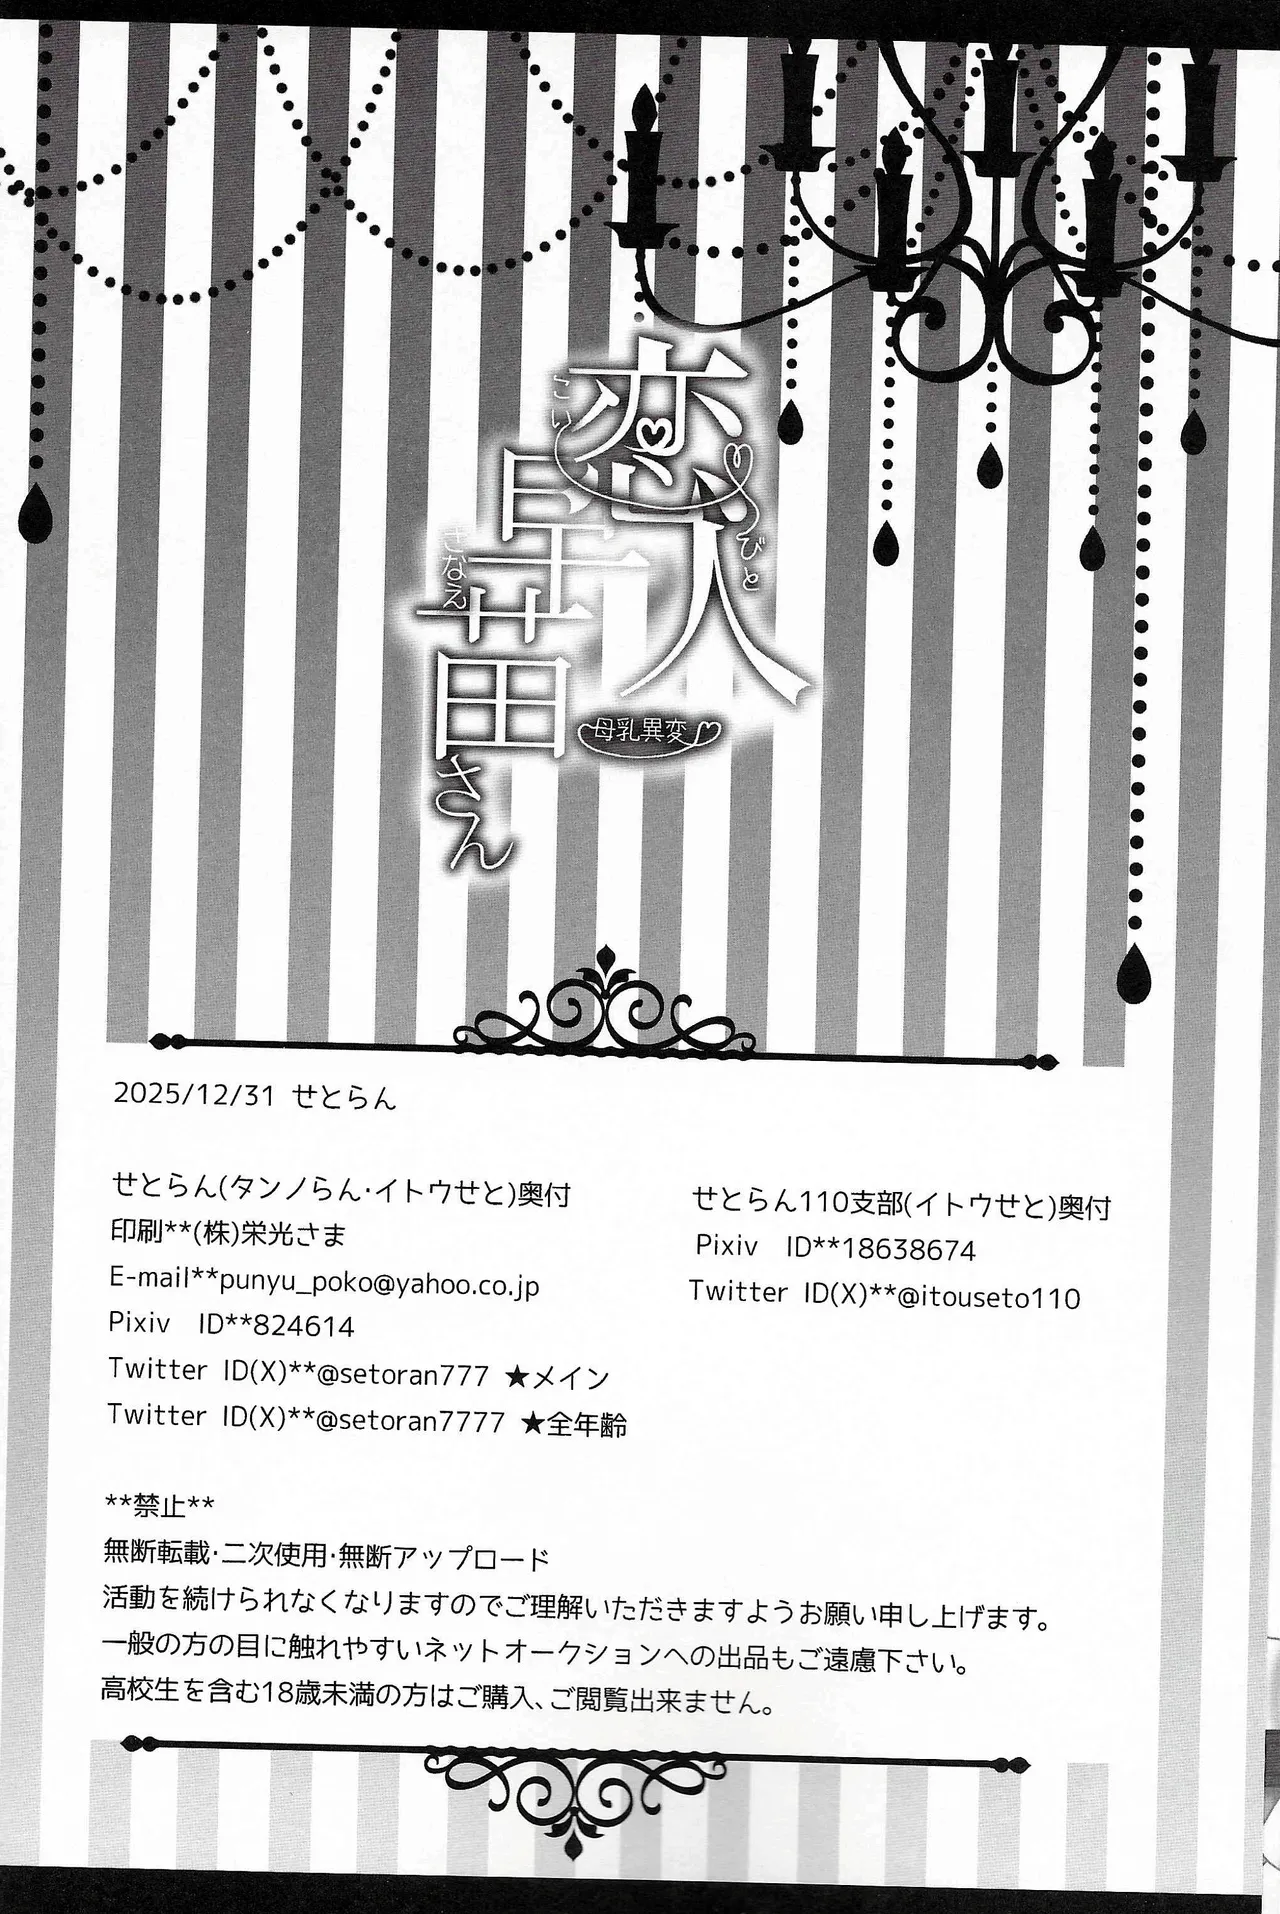 恋人
こい
びと
早苗さん
さなえ
母乳異変
2025/12/31 せとらん
せとらん(タンノらん･イトウせと)奥付
印刷**(株)栄光さま
E-mail**punyu_poko@yahoo.co.jp
Pixiv ID**824614
Twitter ID(X)**@setoran777 ★メイン
Twitter ID(X)**@setoran7777 ★全年齢
せとらん110支部(イトウせと)奥付
Pixiv ID**18638674
Twitter ID(X)**@itouseto110
**禁止**
無断転載･二次使用･無断アップロード
活動を続けられなくなりますのでご理解いただきますようお願い申し上げます。
一般の方の目に触れやすいネットオークションへの出品もご遠慮下さい。
高校生を含む18歳未満の方はご購入、ご閲覧出来ません。